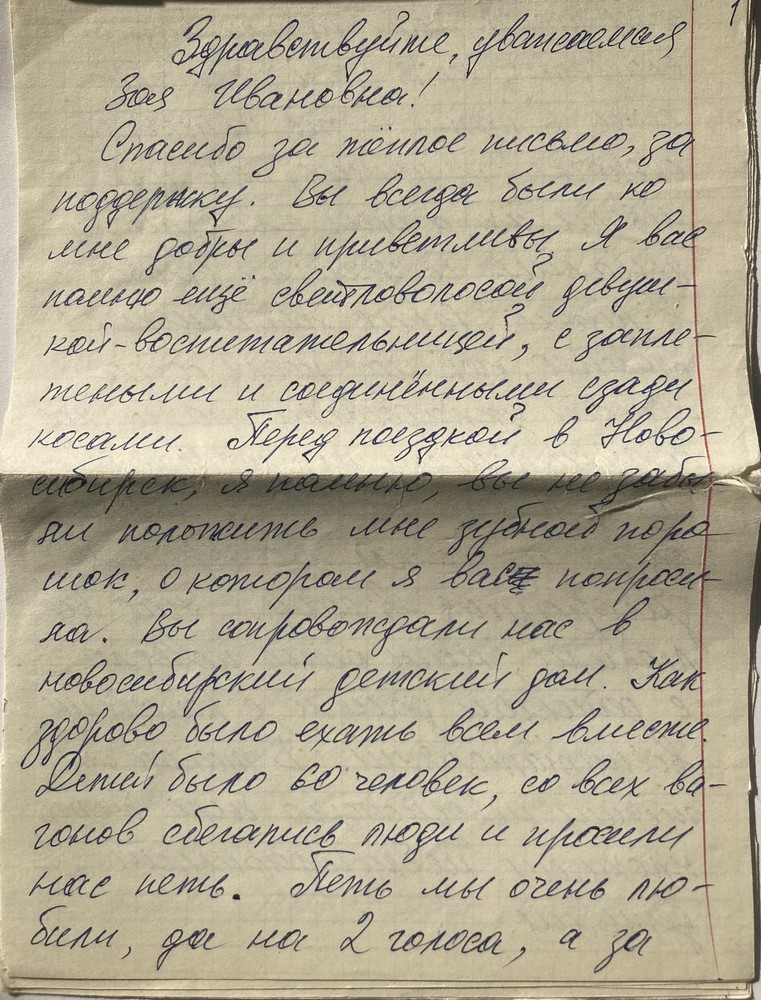 1
Здравствуйте, уважаемая
Зоя Ивановна!
Спасибо за тёплое письмо, за
поддержку. Вы всегда были ко
мне добры и приветливы. Я вас
помню ещё светловолосой девуш-
кой-воспитательницей, с запле-
теными и соединёнными сзади
косами. Перед поездкой в Ново-
сибирск, я помню, вы не забы-
ли положить мне зубной поро
шок, о котором я вас попроси-
ла. Вы сопровождали нас в
новосибирский детский дом. Как
здорово было ехать всем вместе.
Детей было 60 человек, со всех ва-
гонов сбегались люди и просили
нас петь. Петь мы очень лю-
били, да на 2 голоса, а за